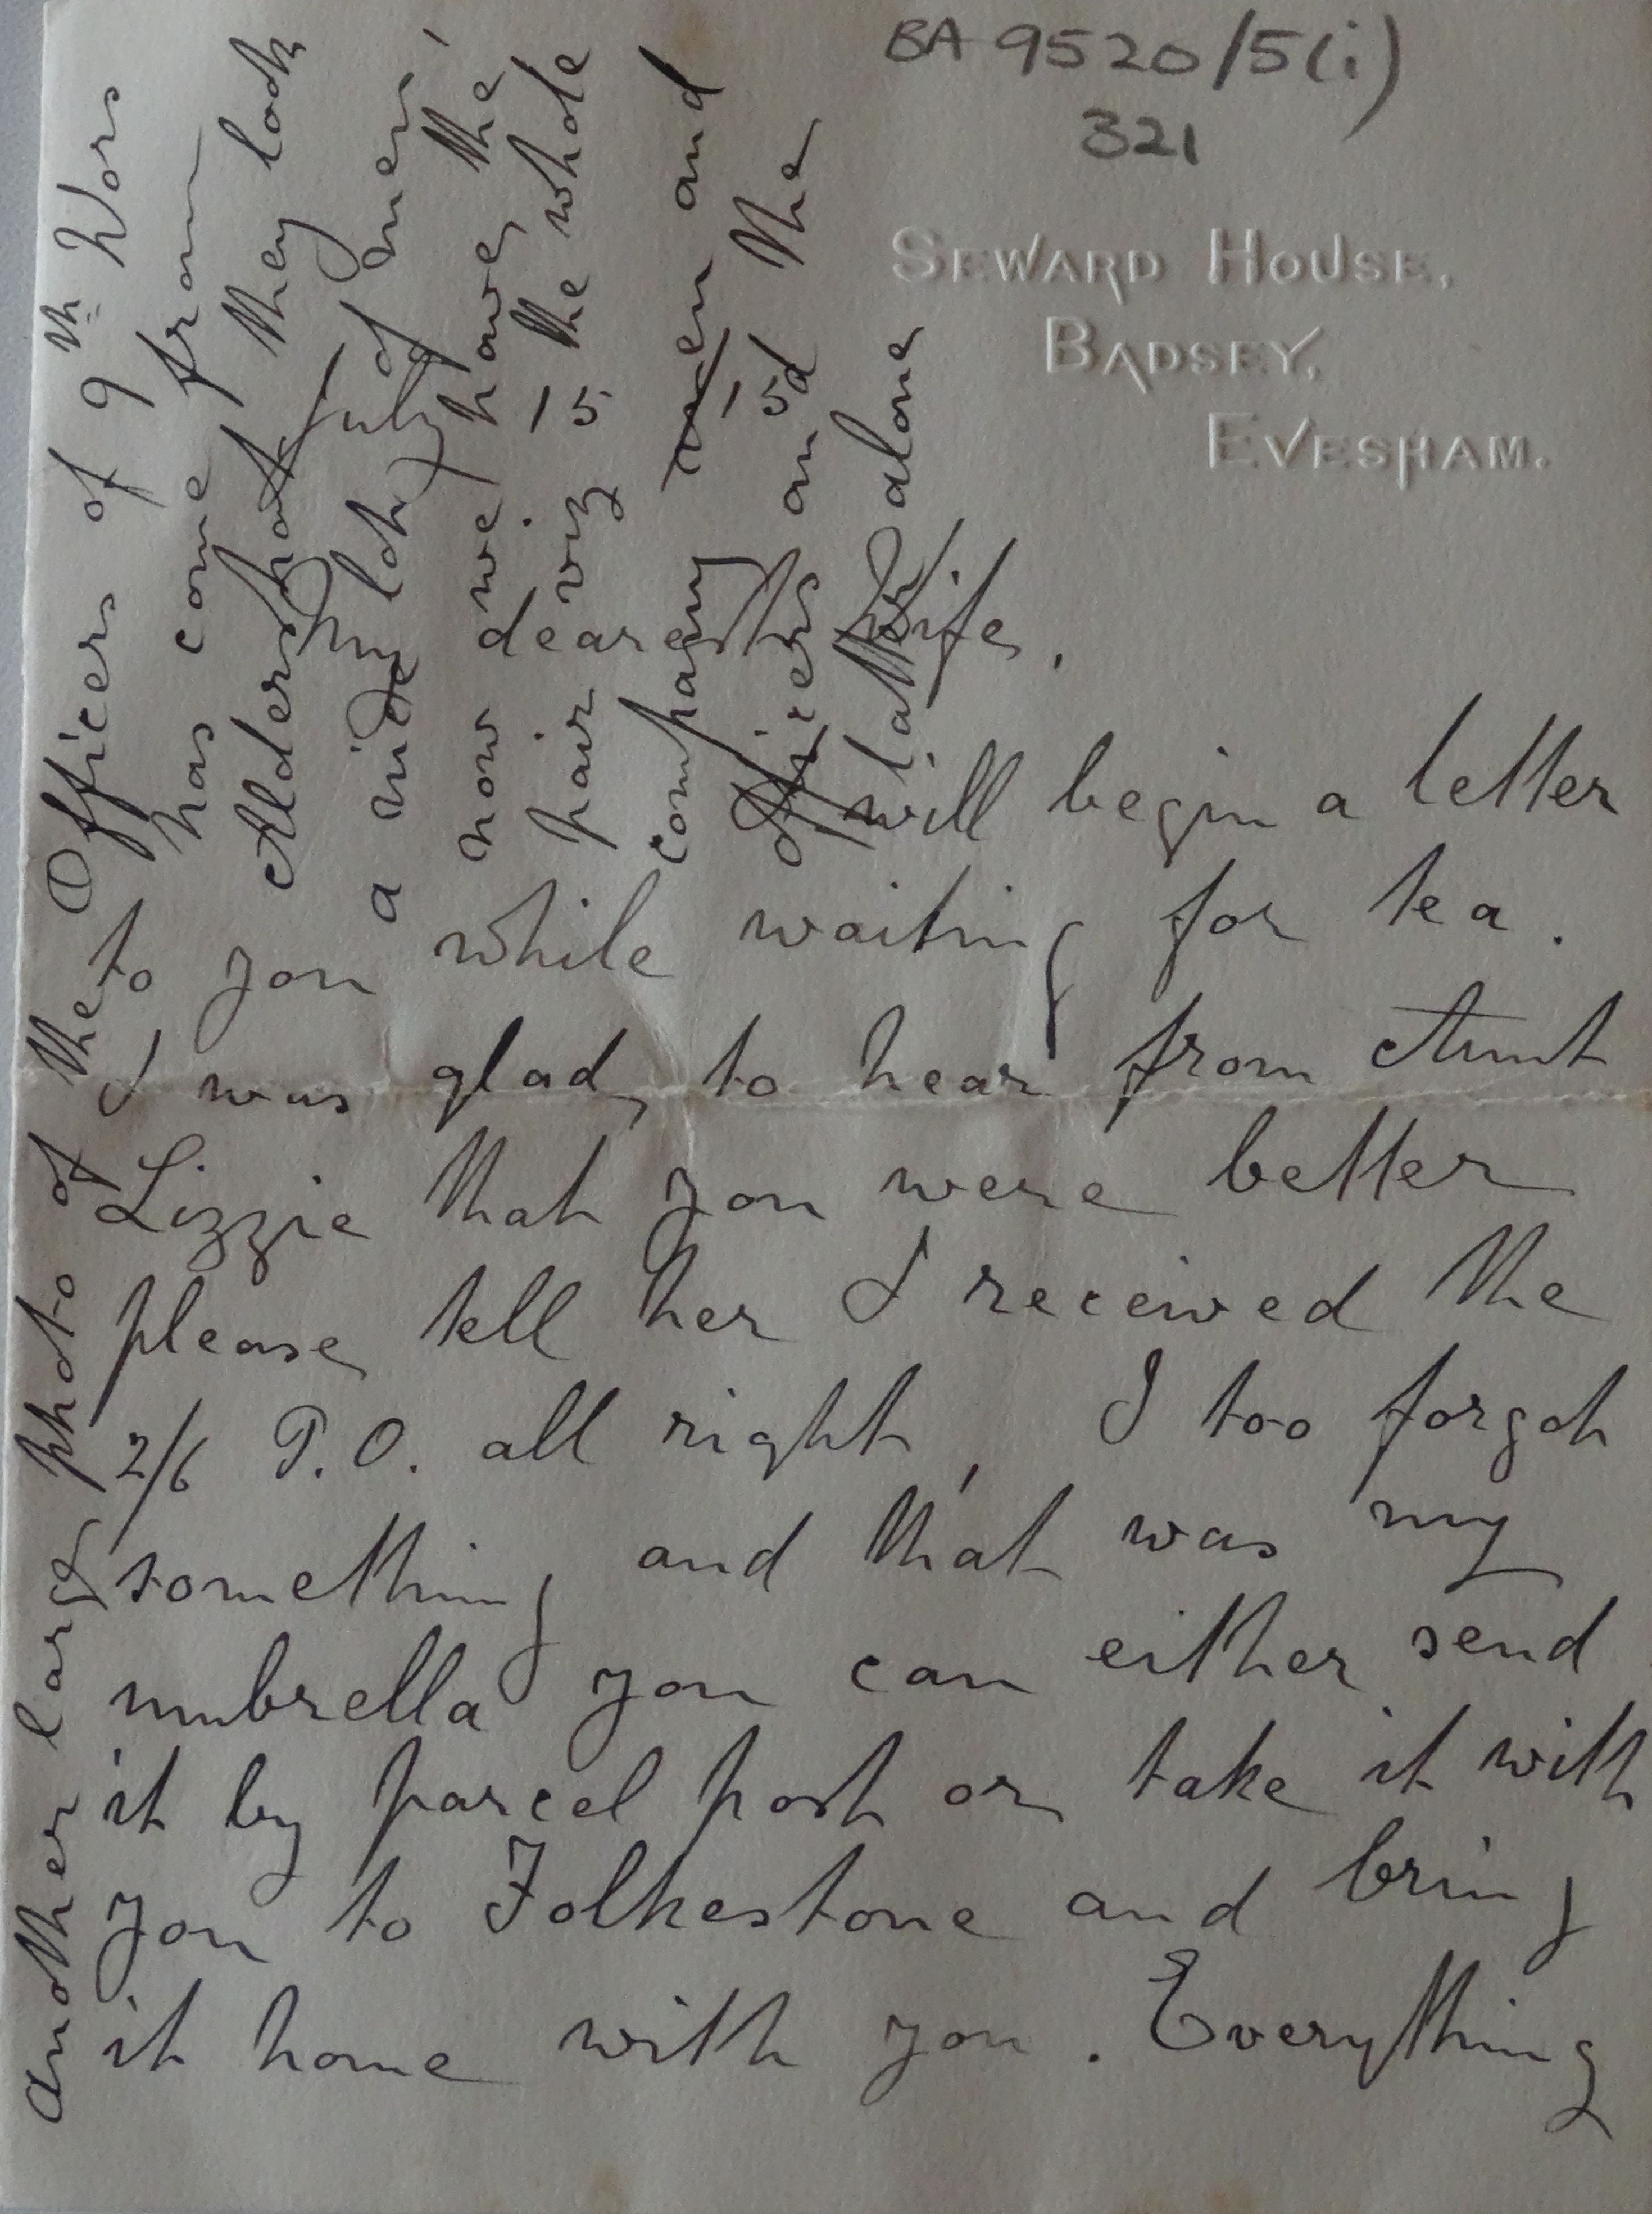 BA 9520/5(i)
321
SEWARD HOUSE,
BADSEY,
EVESHAM.
July 15 15
My dearest Wife,
I will begin a letter
to you while waiting for tea.
I was glad to hear from Aunt
Lizzie that you were better
please tell her I received the
2/6 P.O. all right, I too forgot
something and that was my
umbrella you can either send
it by parcel post or take it with
you to Folkestone and bring
it home with you. Everything
another large photo of the Officers of 9th Wors
has come from
Aldershot they look
a nice lot of men,
now we have the
pair viz. the whole
company men and
officers and the
latter alone